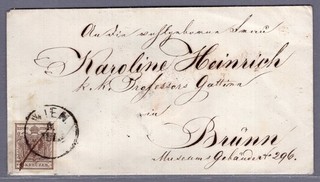 An die wohlgeborne Frau
Karoline Heinrich
k. k. Professors Gattinn
in
Brünn
Museums Gebäude № 296.
WIEN